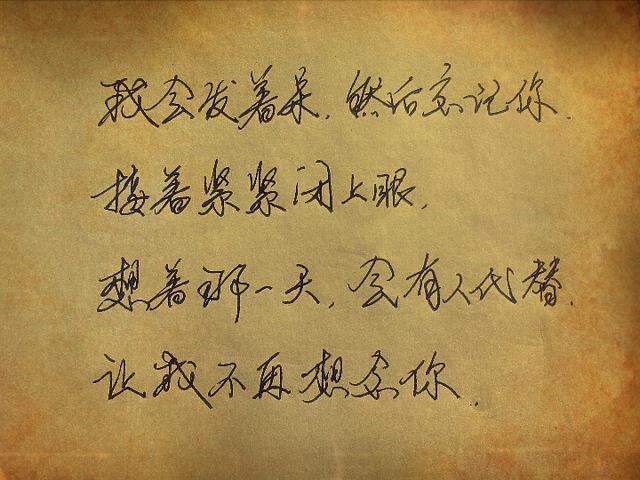 我会发着呆，然后忘记你．
接着紧紧闭上眼，
想着那一天，会有人代替．
让我不再想念你．